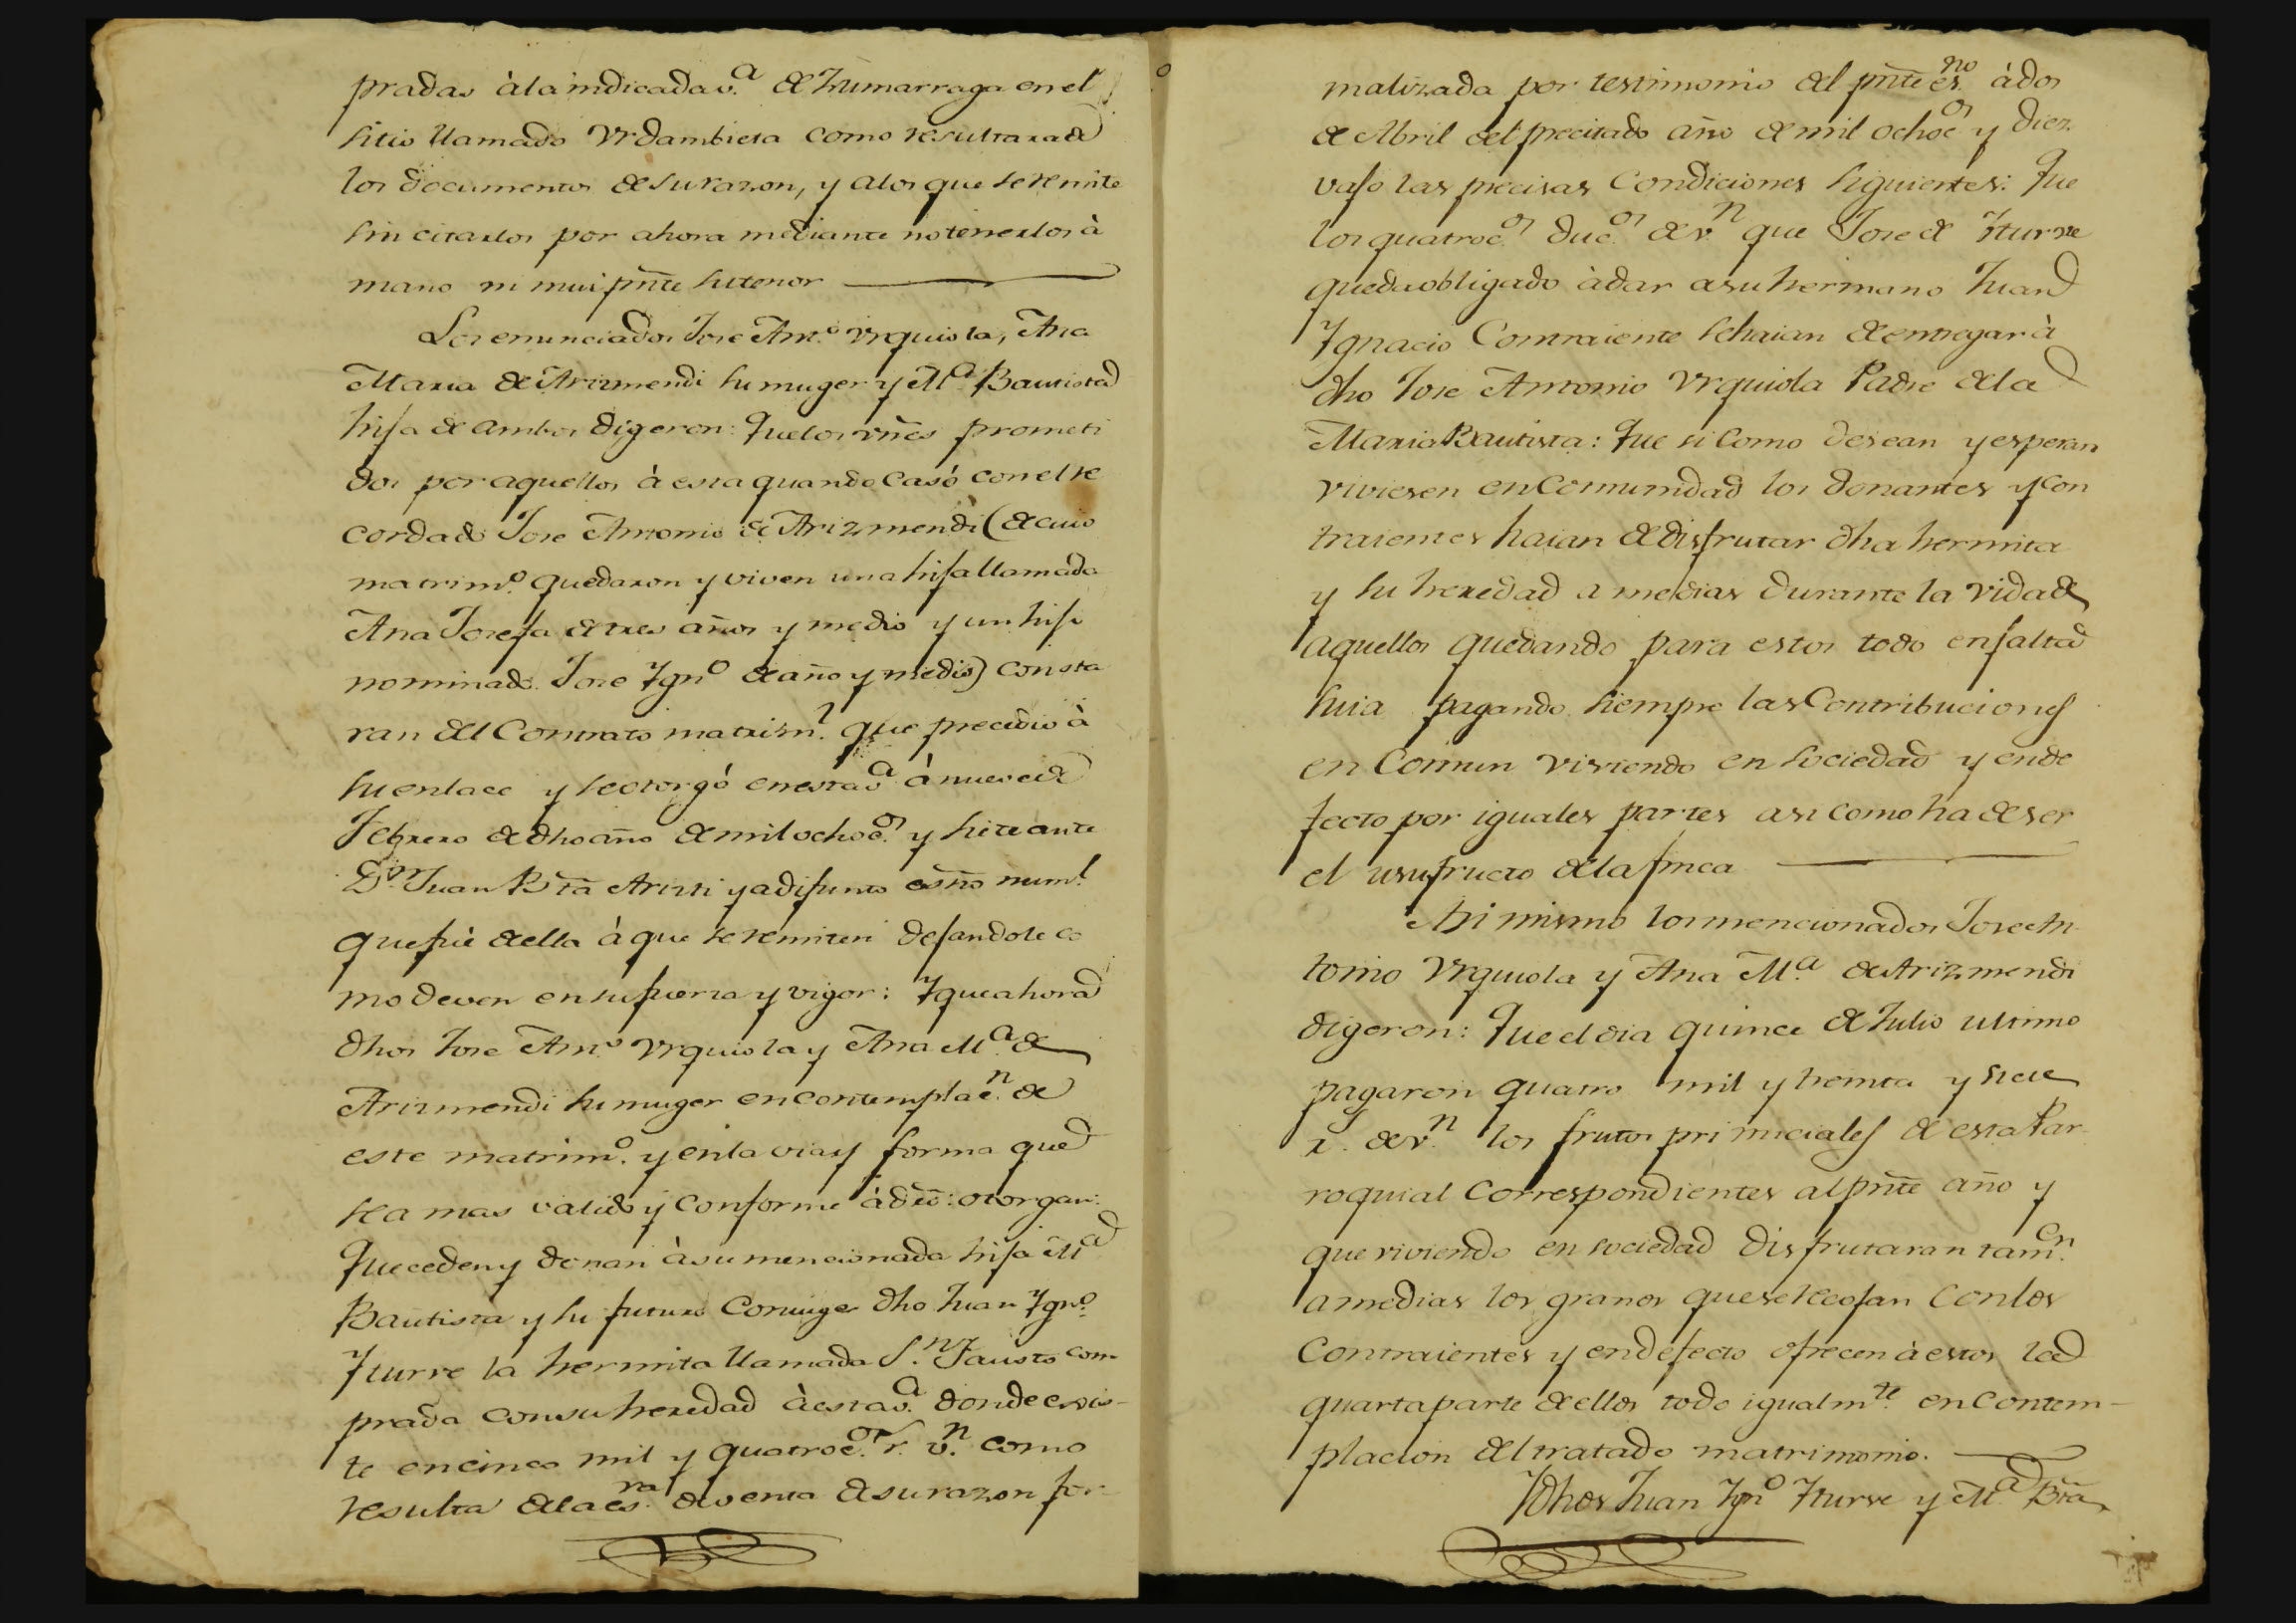 pradas à la indicada v.ª de Zumarraga en el
sitio llamado Vrdambieta como resultara de
los documentos de su razon, y a los que se remite
sin citarlos por ahora mediante no tenerlos à
mano ni mui pñte su tenor
Los enunciados Jose Ant.º Vrquiola, Ana
Maria de Arizmendi su muger y M.ª Bautista
hija de ambos digeron: Que los vñes prometi
dos por aquellos à esta quando casó con el re
cordado Jose Antonio de Arizmendi (de cuio
matrim.º quedaron y viven una hija llamada
Ana Josefa de tres años y medio y un hijo
nominado Jose Ygn.º de año y medio) consta
ran del Contrato matrim.l que precedio à
su enlace y se otorgó en esta v.ª à nueve de
Febrero de dho año de mil ochoc.os y siete ante
D.n Juan Bta Aristi ya difunto esño num.l
que fuè de ella à que se remiten dejandole co
mo deven en su fuerza y vigor: Y que ahora
dhos Jose Ant.º Vrquiola y Ana M.ª de
Arizmendi su muger en contemplac.n de
este matrim.º y en la via y forma que
sea mas valido y conforme à dro: otorgan:
Que ceden y donan à su mencionada hija M.ª
Bautista y su futuro Conuge dho Juan Ygn.º
Yturve la hermita llamada S.n Fausto com-
prada con su heredad à esta v.ª donde exis-
te en cinco mil y quatroc.os r.s v.n como
resulta de la es.ra de venta de su razon for-
malizada por testimonio del pñte es.no à dos
de Abril del precitado año de mil ochoc.os y diez
vajo las precisas Condiciones siguientes: Que
los quatroc.os duc.os de v.n que Jose de Yturve
queda obligado à dar a su hermano Juan
Ygnacio Contraiente se haian de entregar à
dho Jose Antonio Vrquiola Padre de la
Maria Bautista: Que si como desean y esperan
viviesen en Comunidad los donantes y con
traientes haian de disfrutar dha hermita
y su heredad a medias durante la vida de
aquellos quedando para estos todo en falta
suia pagando siempre las Contribuciones
en Comun viviendo en sociedad y en de
fecto por iguales partes asi como ha de ser
el usufructo de la finca
Asi mismo los mencionados Jose An
tonio Vrquiola y Ana M.ª de Arizmendi
digeron: Que el dia quince de Julio ultimo
pagaron quatro mil y treinta y siete
r.s de v.n los frutos primiciales de esta Par
roquial correspondientes al pñte año y
que viviendo en sociedad disfrutaran tam.en
a medias los granos que se recojan con los
Contraientes y en defecto ofrecen à estos la
quarta parte de ellos todo igualm.te en contem-
placion del tratado matrimonio.
Y dhos Juan Ygn.º Yturve y M.ª Bta